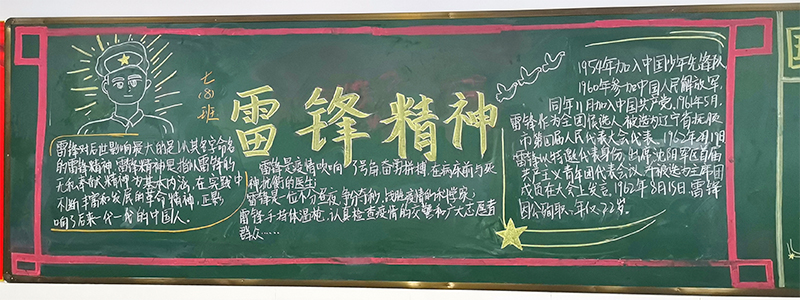 七(8)班
雷锋精神
雷锋对后世影响最大的是以其名字命名
的雷锋精神,雷锋精神是指以雷锋的
无私奉献精神为基本内涵,在实践中
不断丰富和发展的革命精神,
响了后来一代一代的中国人。
雷锋是疫情吹响了号角奋勇拼搏,在病床前与死
神抗衡的医生
雷锋是一位不分昼夜,争分夺秒,战胜疫情的科学家;
雷锋手持体温枪,认真检查疫情的交警和广大志愿者
群众……
1954年加入中国少年先锋队
1960年参加中国人民解放军,
同年11月加入中国共产党,1961年5月,
雷锋作为全国候选人,被选为辽宁省抚顺
市第四届人民代表大会代表。1962年2月19日
雷锋以特邀代表身份,出席沈阳军区首届
共产主义青年团代表会议,并被选为主席团
成员在大会上发言。1962年8月15日雷锋
因公殉职,年仅22岁。